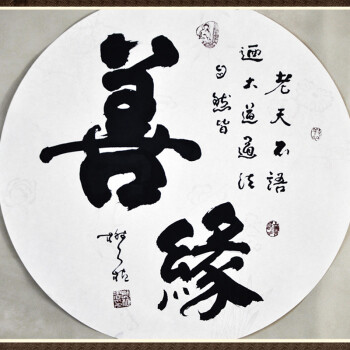 老天不語
迺大道道法
自然皆
善緣